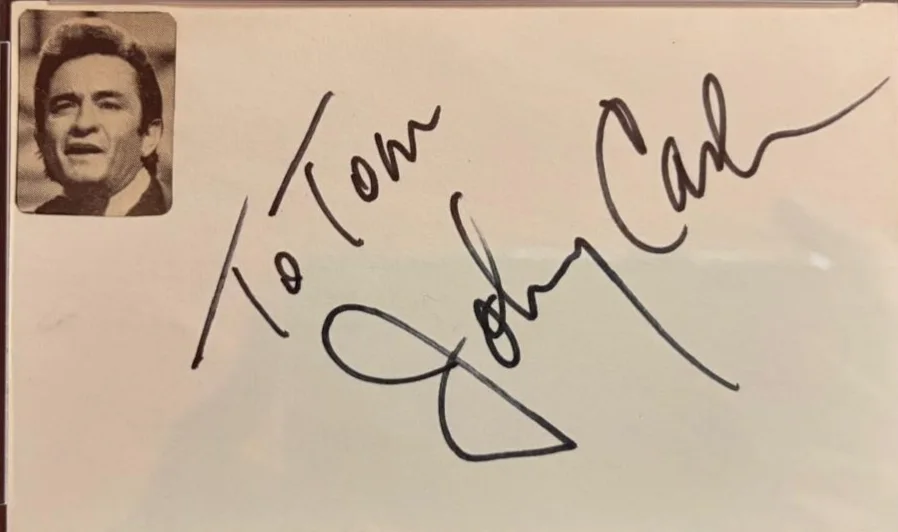 To Tom
Johnny Cash